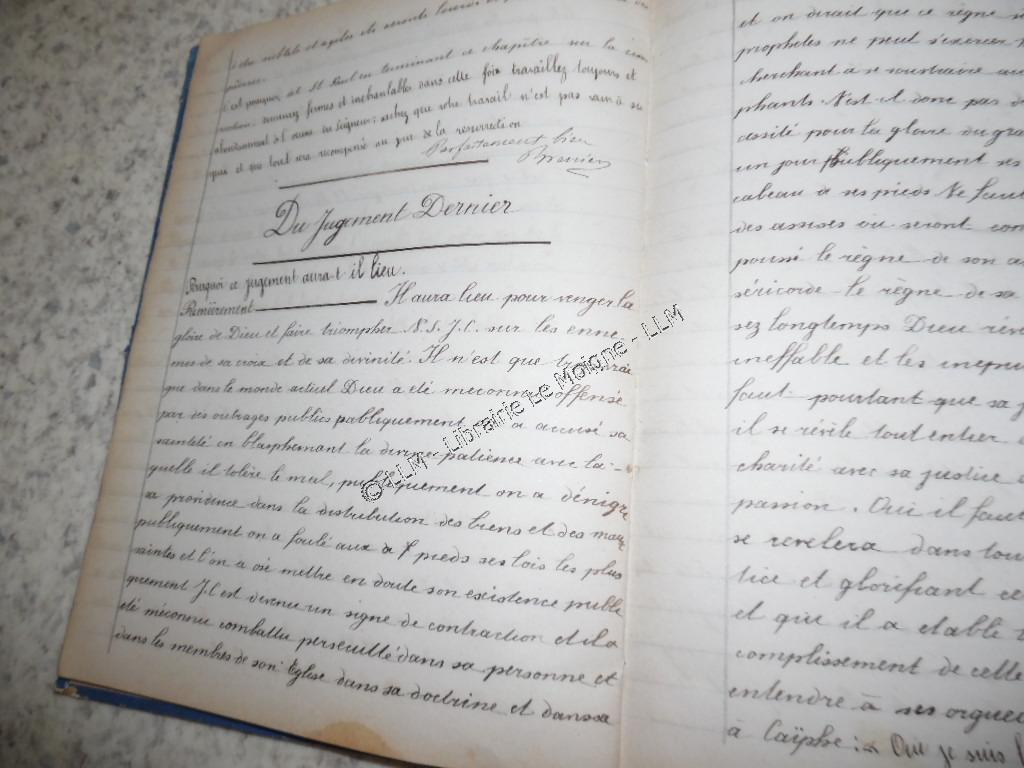 du
c'est pourquoi St Paul en terminant ce chapitre sur la
demeurez fermes et inébranlables dans cette foi travaillez toujours et
abondamment à l'œuvre du Seigneur; sachez que votre travail n'est pas vain à ses
yeux et que tout sera récompensé au jour de la résurrection
Parfaitement bien
Du Jugement Dernier
Pourquoi ce jugement aura-t-il lieu.
Premièrement Il aura lieu pour venger la
gloire de Dieu et faire triompher N.S.J.C. sur les enne
mis de sa croix et de sa divinité. Il n'est que trop vrai
que dans le monde actuel Dieu a été méconnu offensé
par des outrages publics publiquement on a accusé sa
sainteté en blasphémant la divine patience avec la-
quelle il tolère le mal, publiquement on a dénigré
sa providence dans la distribution des biens et des maux
publiquement on a foulé aux pieds ses lois les plus
saintes et l'on a osé mettre en doute son existence publi
quement J.C est devenu un signe de contraction et il a
été méconnu combattu persecuté dans sa personne et
dans les membres de son Eglise dans sa doctrine et dans sa
et on dirait que ce règne
prophètes ne peut s'exercer
cherchant à se soustraire aux
phants. N'est-il donc pas de
cessité pour la gloire du gra
un jour Publiquement ses
cabeau à ses pieds Ne faut
des assises où seront con
poussé le règne de son a
séricorde le règne de sa
sez longtemps Dieu
ineffable et les
faut pourtant que sa j
il se révèle tout entier
charité avec sa justice
passion. Oui il faut
se revelera dans tou
tice et glorifiant ce
et que il a etable
complissement de celle
entendre à ses orgue
à Caïphe: Oui je suis
©LLM - Librairie Le Moigne - LLM